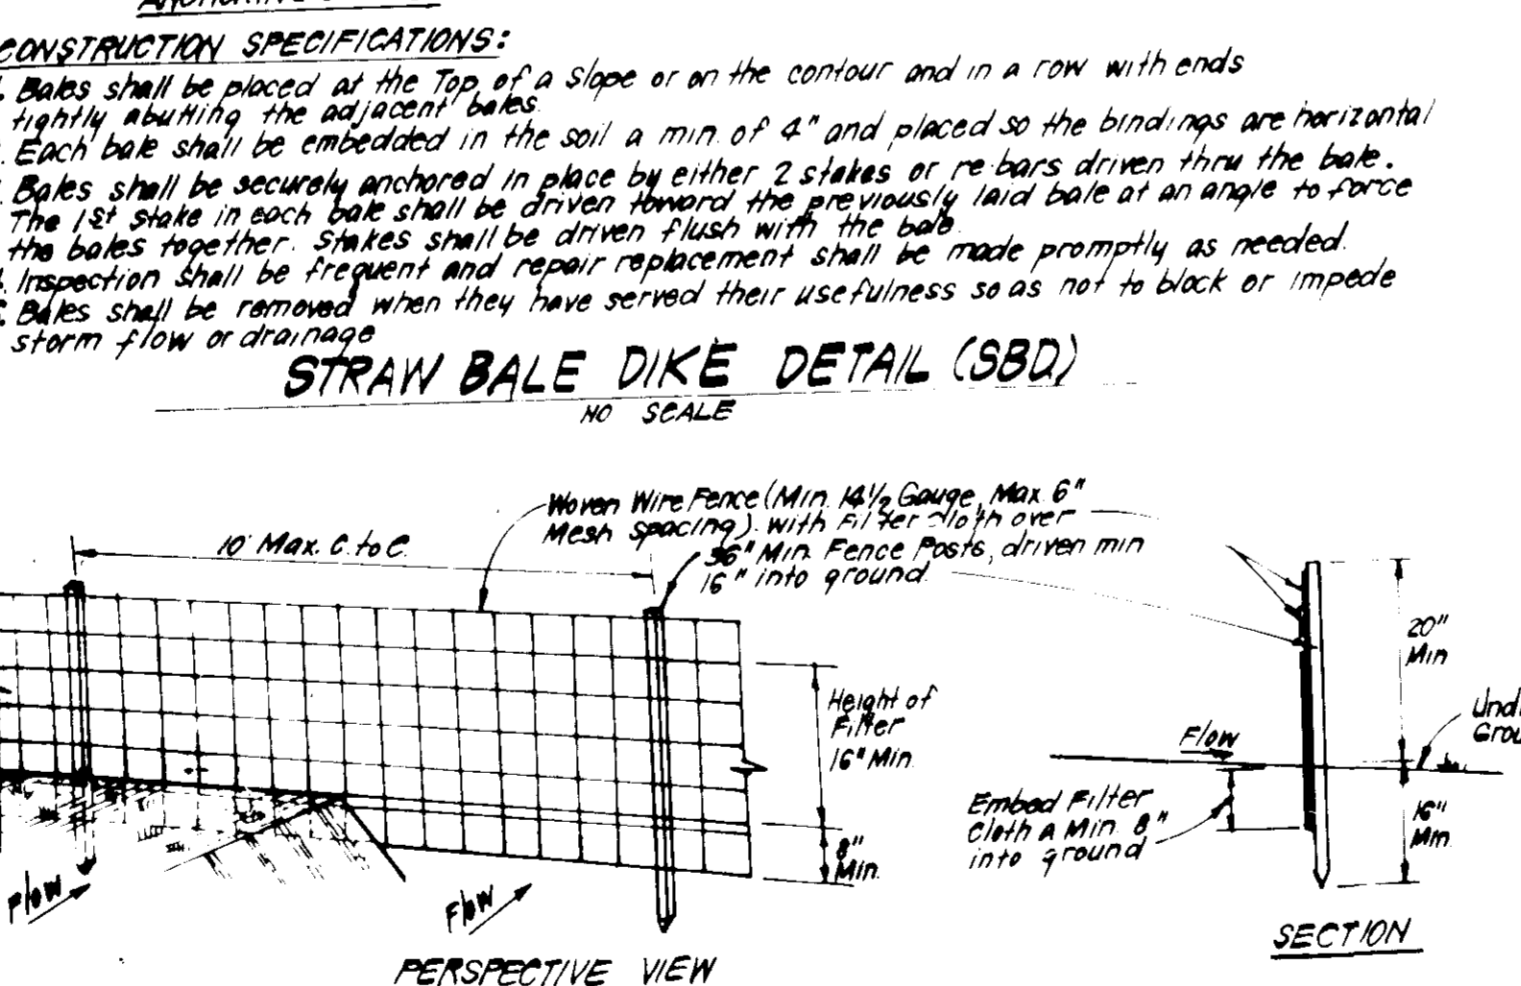 CONSTRUCTION SPECIFICATIONS:
Bales shall be placed at the Top of a slope or on the contour and in a row with ends
tightly abutting the adjacent bales.
Each bale shall be embedded in the soil a min. of 4" and placed so the bindings are horizontal
Bales shall be securely anchored in place by either 2 stakes or re-bars driven thru the bale.
The 1st stake in each bale shall be driven toward the previously laid bale at an angle to force
the bales together. Stakes shall be driven flush with the bale.
Inspection shall be frequent and repair replacement shall be made promptly as needed.
Bales shall be removed when they have served their usefulness so as not to block or impede
storm flow or drainage
STRAW BALE DIKE DETAIL (SBD)
NO SCALE
Woven Wire Fence (Min. 14½ Gauge, Max. 6"
Mesh spacing) with Filter Cloth over
36" Min. Fence Posts, driven min
16" into ground.
10' Max. C. to C.
20"
Min
Height of
Filter
16" Min.
Flow
Embed Filter
Cloth a Min. 8"
into ground
16"
Min.
8"
Min.
Flow
Flow
SECTION
PERSPECTIVE VIEW